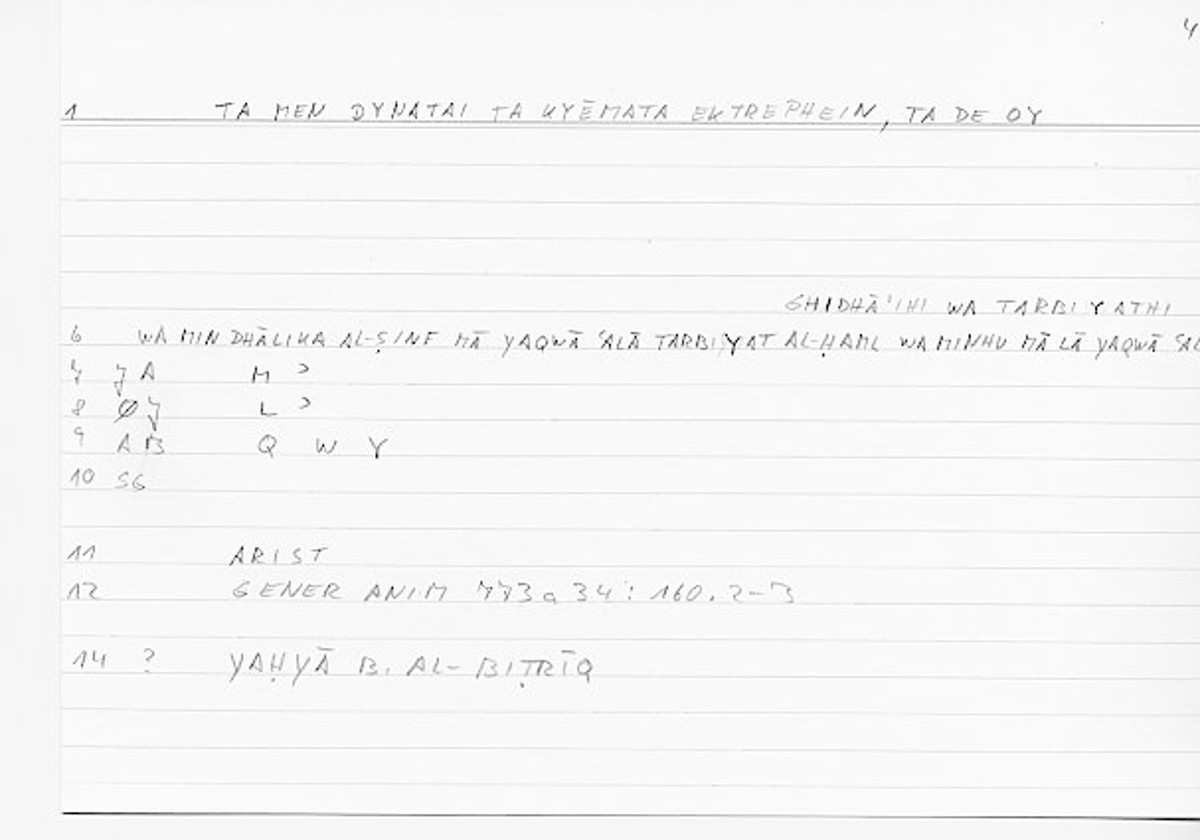 4
1 TA MEN DYNATAI TA KYĒMATA EKTREPHEIN, TA DE OY
GHIDHĀ'IHI WA TARBIYATHI
6 WA MIN DHĀLIKA AL-ṢINF MĀ YAQWĀ ʿALĀ TARBIYAT AL-ḤAML WA MINHU MĀ LĀ YAQWĀ
7 J A M ʾ
8 Ø J L ʾ
9 A B Q W Y
10 SG
11 ARIST
12 GENER ANIM 773a34: 160.2-3
14 ? YAḤYĀ B. AL-BIṬRĪQ